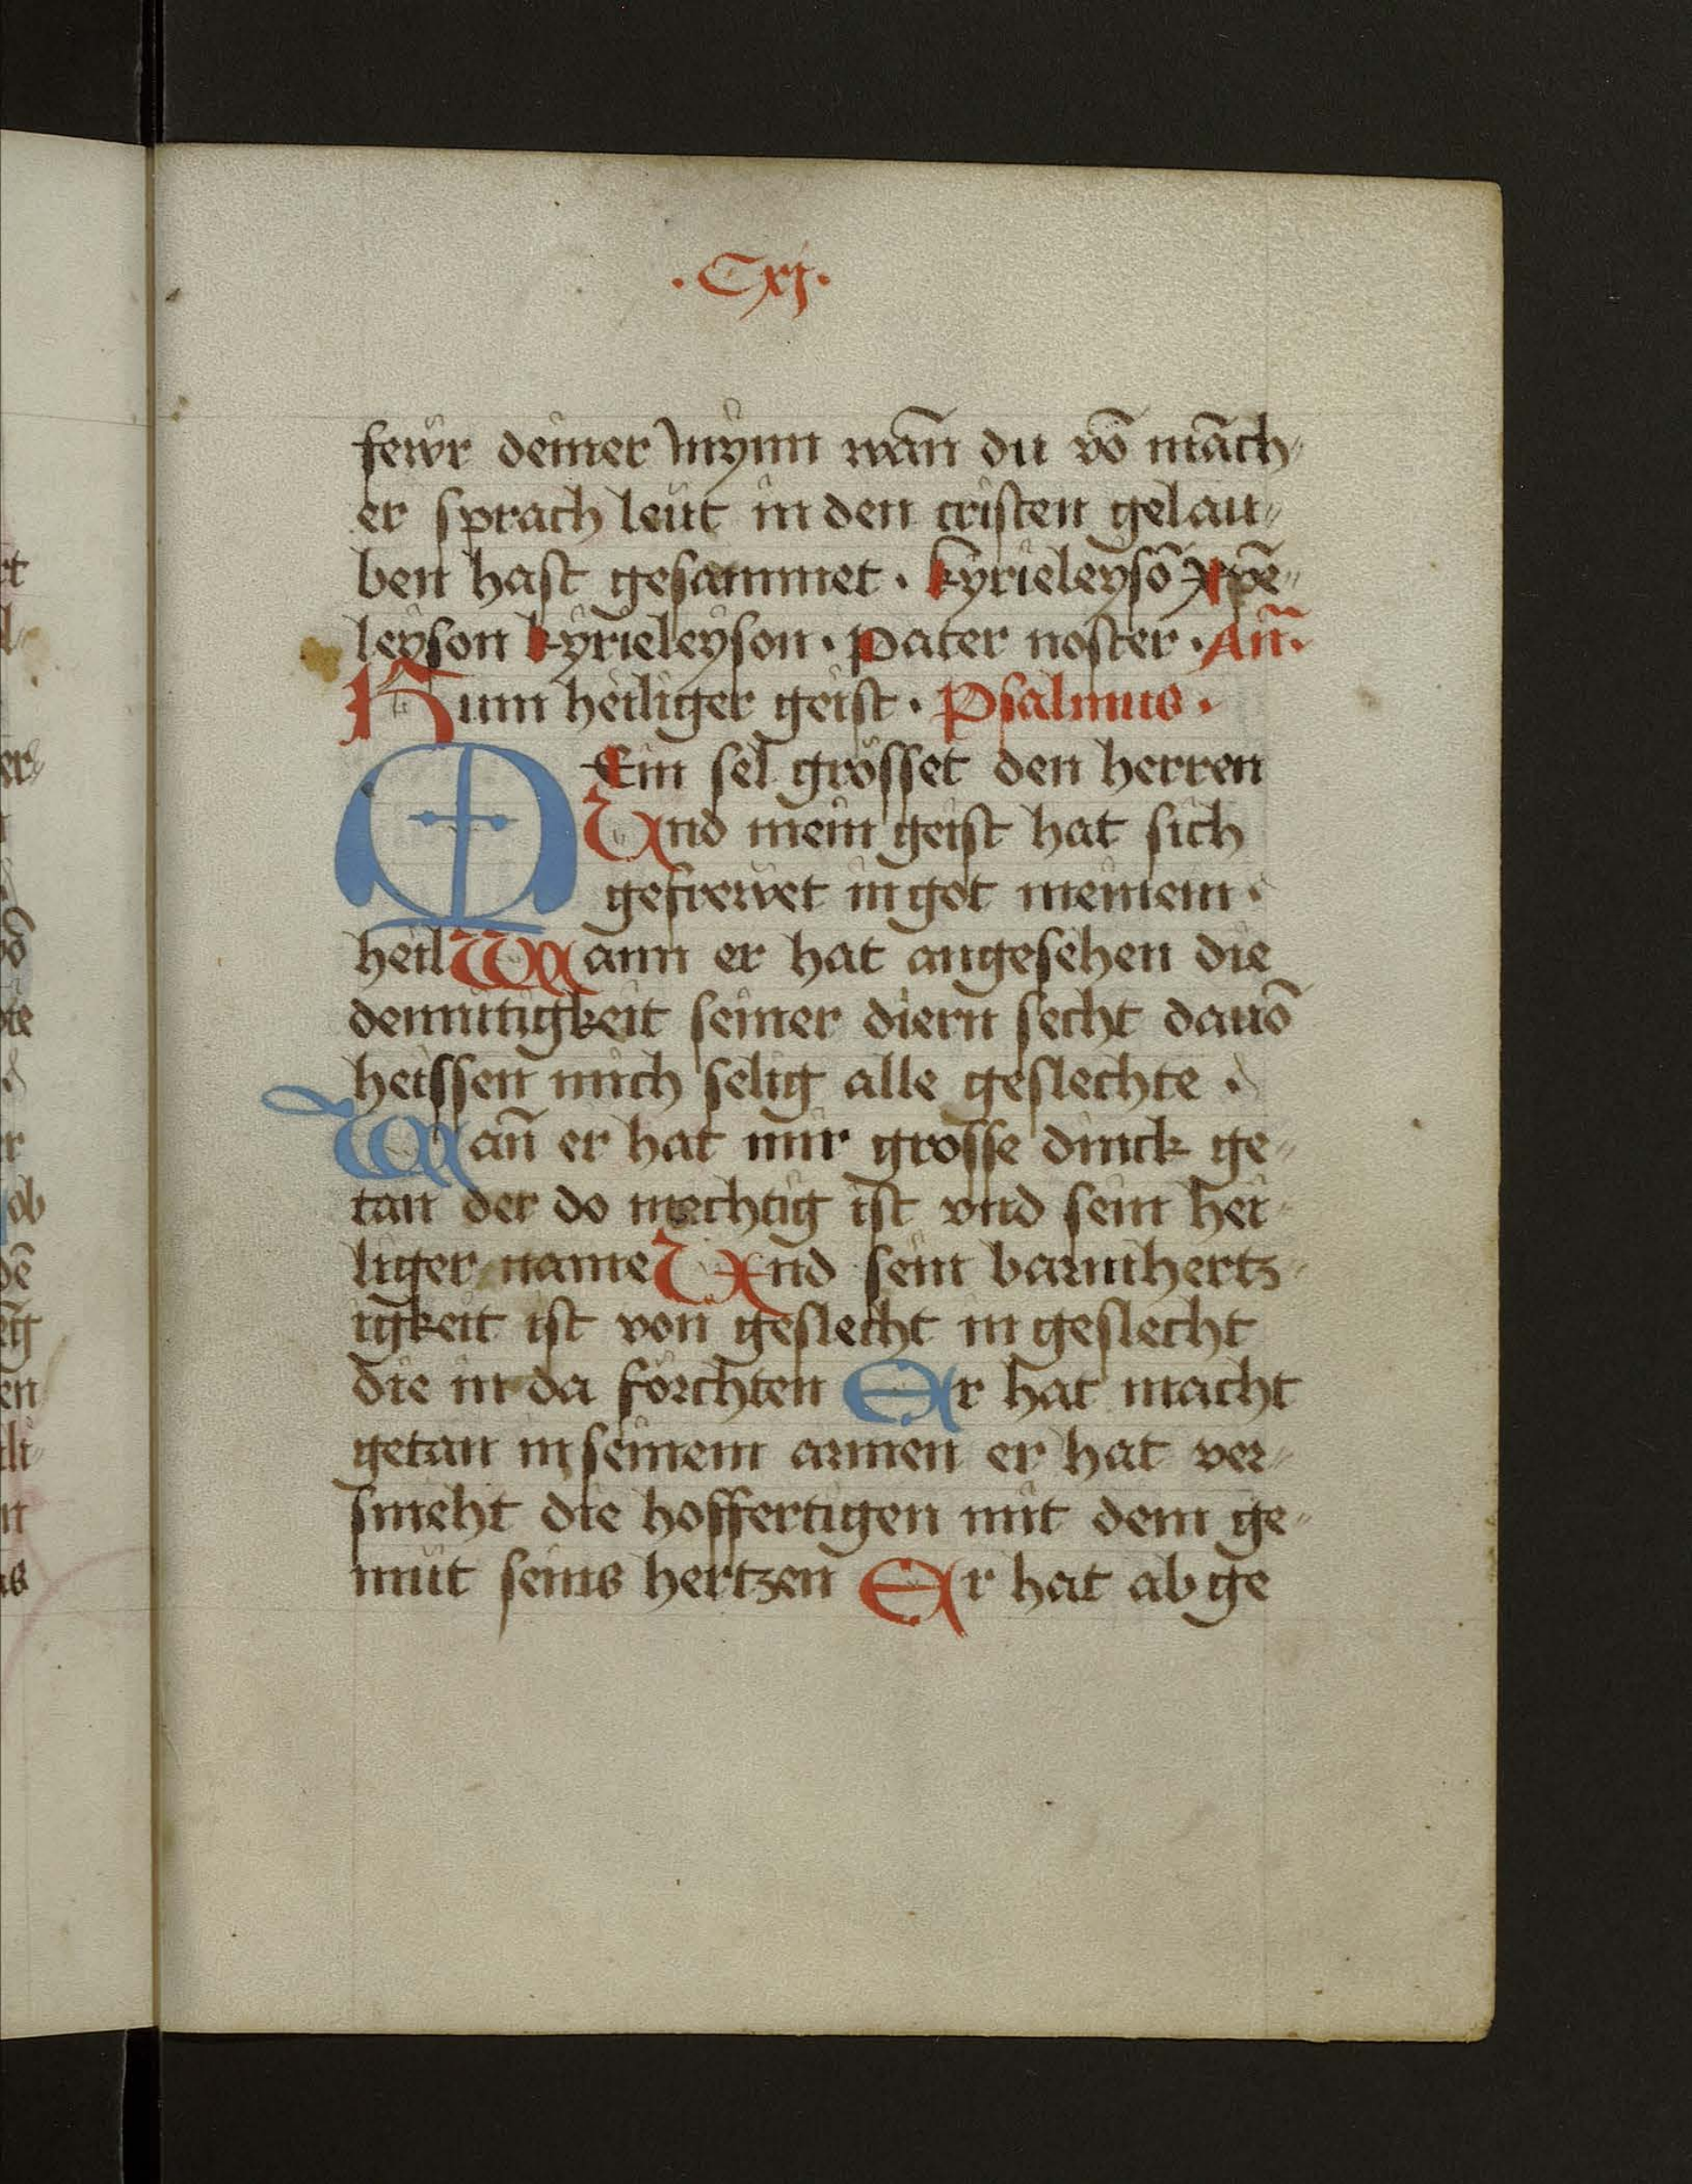 ·Cxj·
fewr deiner mynn wan̄ du vō māch⸗
er sprach leut in den cristen gelau⸗
ben hast gesammet · kyrieleysō xp̄e⸗
leyson kyrieleyson · Pater noster · An̄·
Kum heiliger geist · Psalmus ·
MEin sel grösset den herren
Und mein geist hat sich
gefrewet in got meinem ·
heil Wann er hat angesehen die
demutigkeit seiner diern secht dauō
heissen mich selig alle geslechte ·
Wan̄ er hat mir grosse dinck ge⸗
tan der do mechtig ist vnd sein hei⸗
liger name Und sein barmhertz⸗
igkeit ist von geslecht in geslecht
die in da förchten Er hat macht
getan in seinem armen er hat ver⸗
smeht die hoffertigen mit dem ge⸗
müt seins hertzen Er hat ab ge